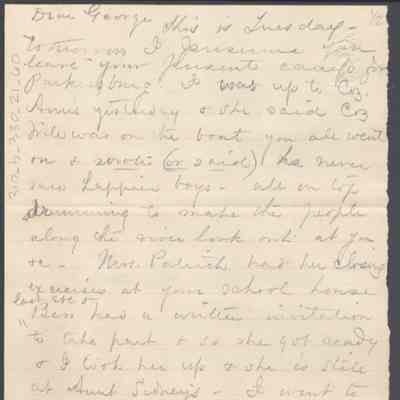 Dear George This is Tuesday -
tomorrow I presume you
leave your present camp for
Parkersburg. I was up to Coz.
Annie yesterday & she said Coz
Wile was on the boat you all went
on & wrote (or said) he never
saw happier boys - all on top
drumming to make the people
along the river look out at you
&c - Mrs. Patrick had her closing
exercises at your school house
last eve &
"Bess had a written invitation
to take part & so she got ready
& I took her up & she is still
at Aunt Sidney's - I went to
1/2